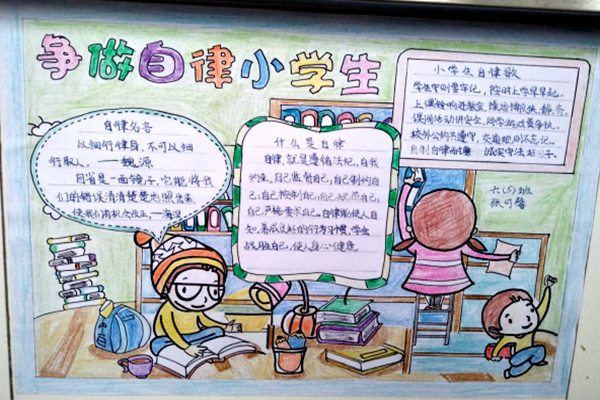 争做自律小学生
自律名言
以细行律身，不可以细
行取人。——魏源
自省是一面镜子，它能将我
们的错误清清楚楚地照出来
使我们有机会改正。—海涅
什么是自律
自律，就是遵循法纪，自我
约束，自己监督自己，自己制约自
己，自己控制自己，自己规范自己，
自己严格要求自己。自律能使人自
知，养成良好的行为习惯，学会
战胜自己，使人身心健康
小学生自律歌
学生守则要牢记，按时上学早早起。
上课铃响进教室，慢步排队快、静、齐
课间活动讲安全，同学游戏要争执。
校外公约共遵守，交通规则不忘记。
自制自律而谦 诚实守法好子。
六(5)班
张可馨